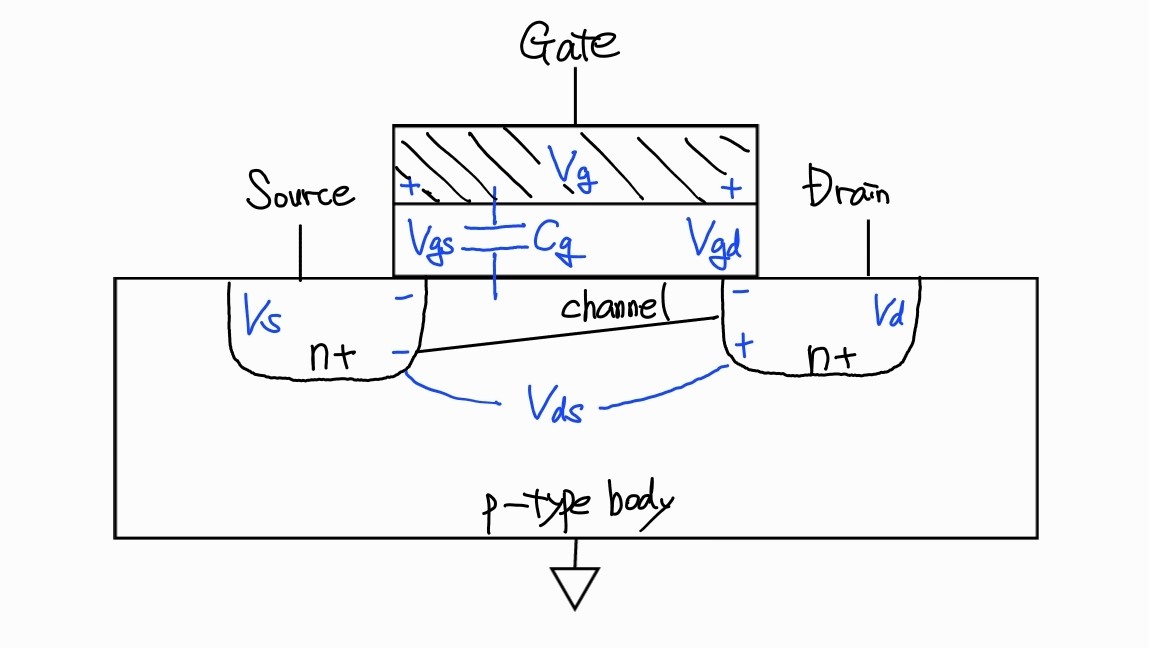 Gate
Vg
+ +
Source
Drain
Vgs Cg Vgd
- -
channel
Vs
Vd
n+ - + n+
Vds
p-type body